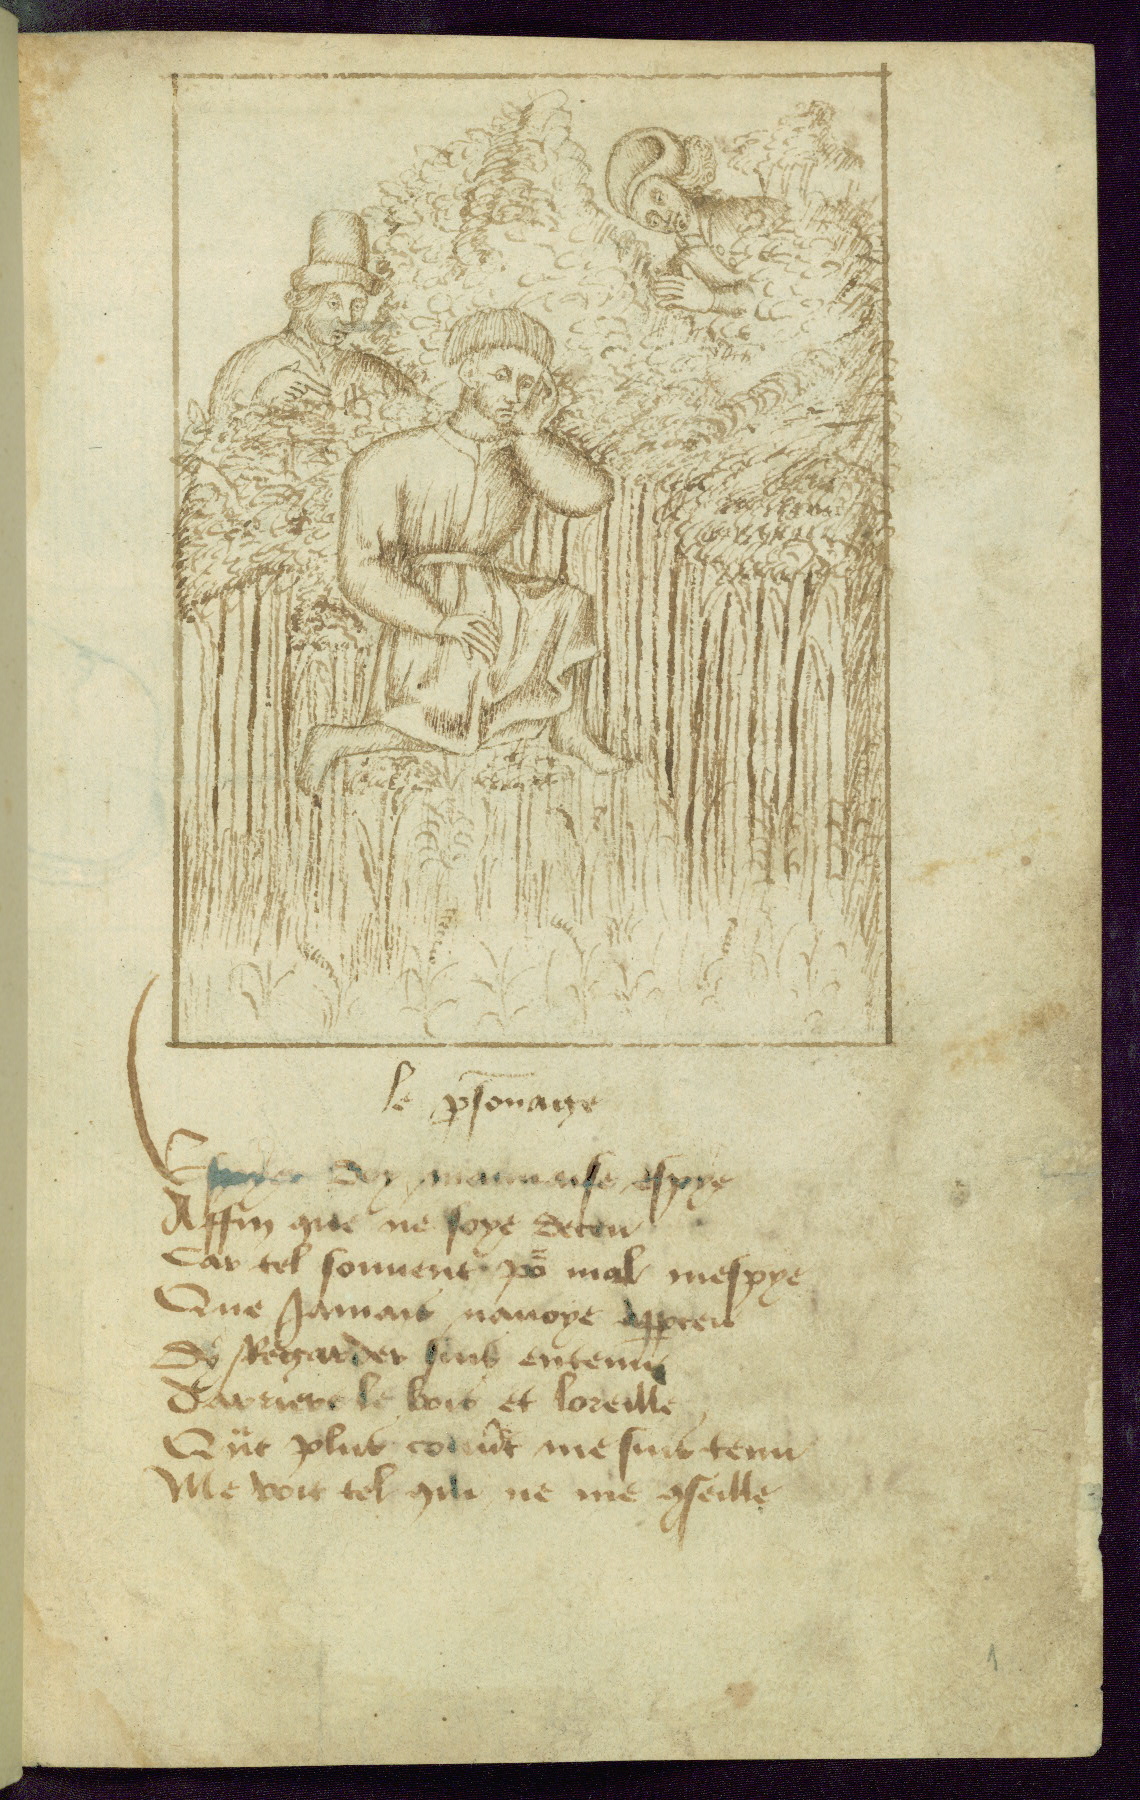 le p̄sonage
doy mauuaise espye
Affin que ne soye deceu
Car tel souuent po᷑ mal mespye
Que Jamais nauoye apperceu
De Regarder suis entenu
Darriere le bois et loreille
Qūt plus couu̾t me suis tenu
Me voit tel qui ne me ꝯseille
1